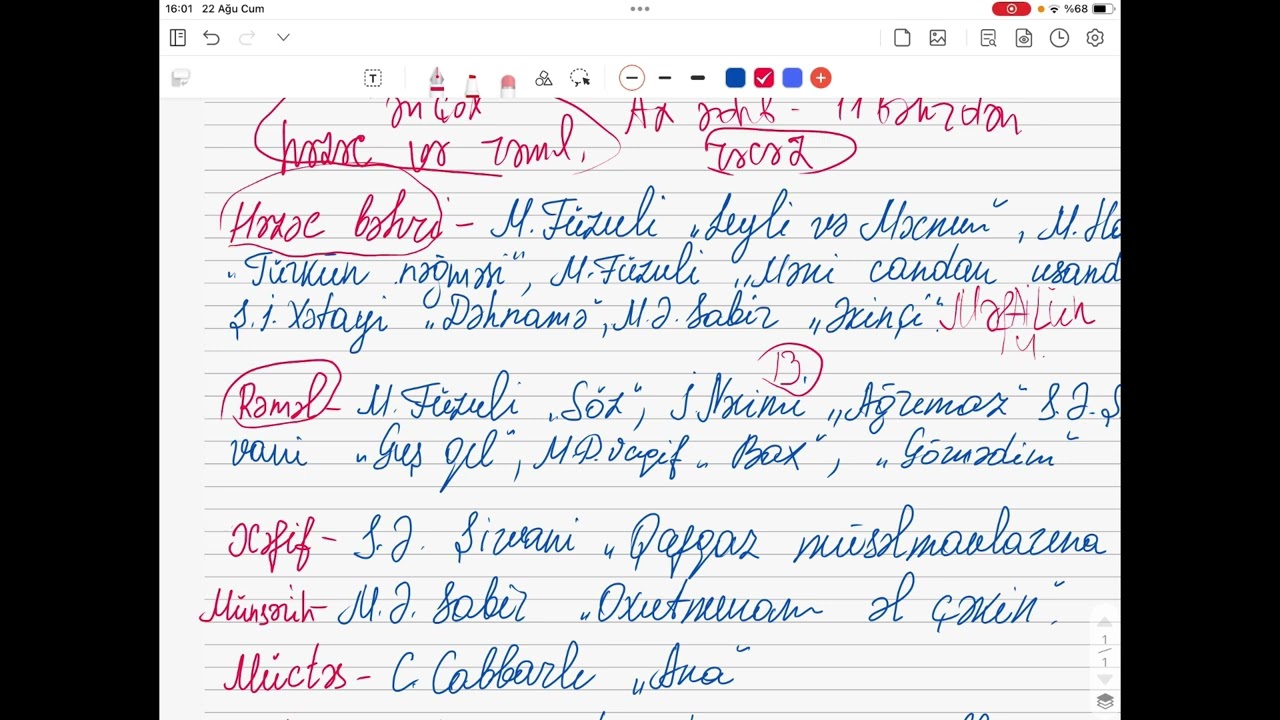 16:01 22 Ağu Cum
%68
T
ən çox
Az əhk - 11 bəhrdən
həzəc və rəml.
rəcəz
Həzəc bəhri - M. Füzuli „Leyli və Məcnun", M. Ha
„Türkün nəğməsi", M. Füzuli „Məni candan usand
Ş.İ. Xətayi „Dəhnamə", M.Ə. Sabir „Əkinçi". Məfailün
4.
13.
Rəməl - M. Füzuli „Söz", İ Nəimi „Ağrımaz" S.Ə. Ş
vani „Guş gəl", M.P. Vaqif „Bax", „Görmədim"
Xəfif - S.Ə. Şirvani „Qafqaz müsəlmanlarına
Münsərih - M.Ə. Sabir „Oxutmuram əl çəkin".
Müctəs - C. Cabbarlı „Ana"
1
1